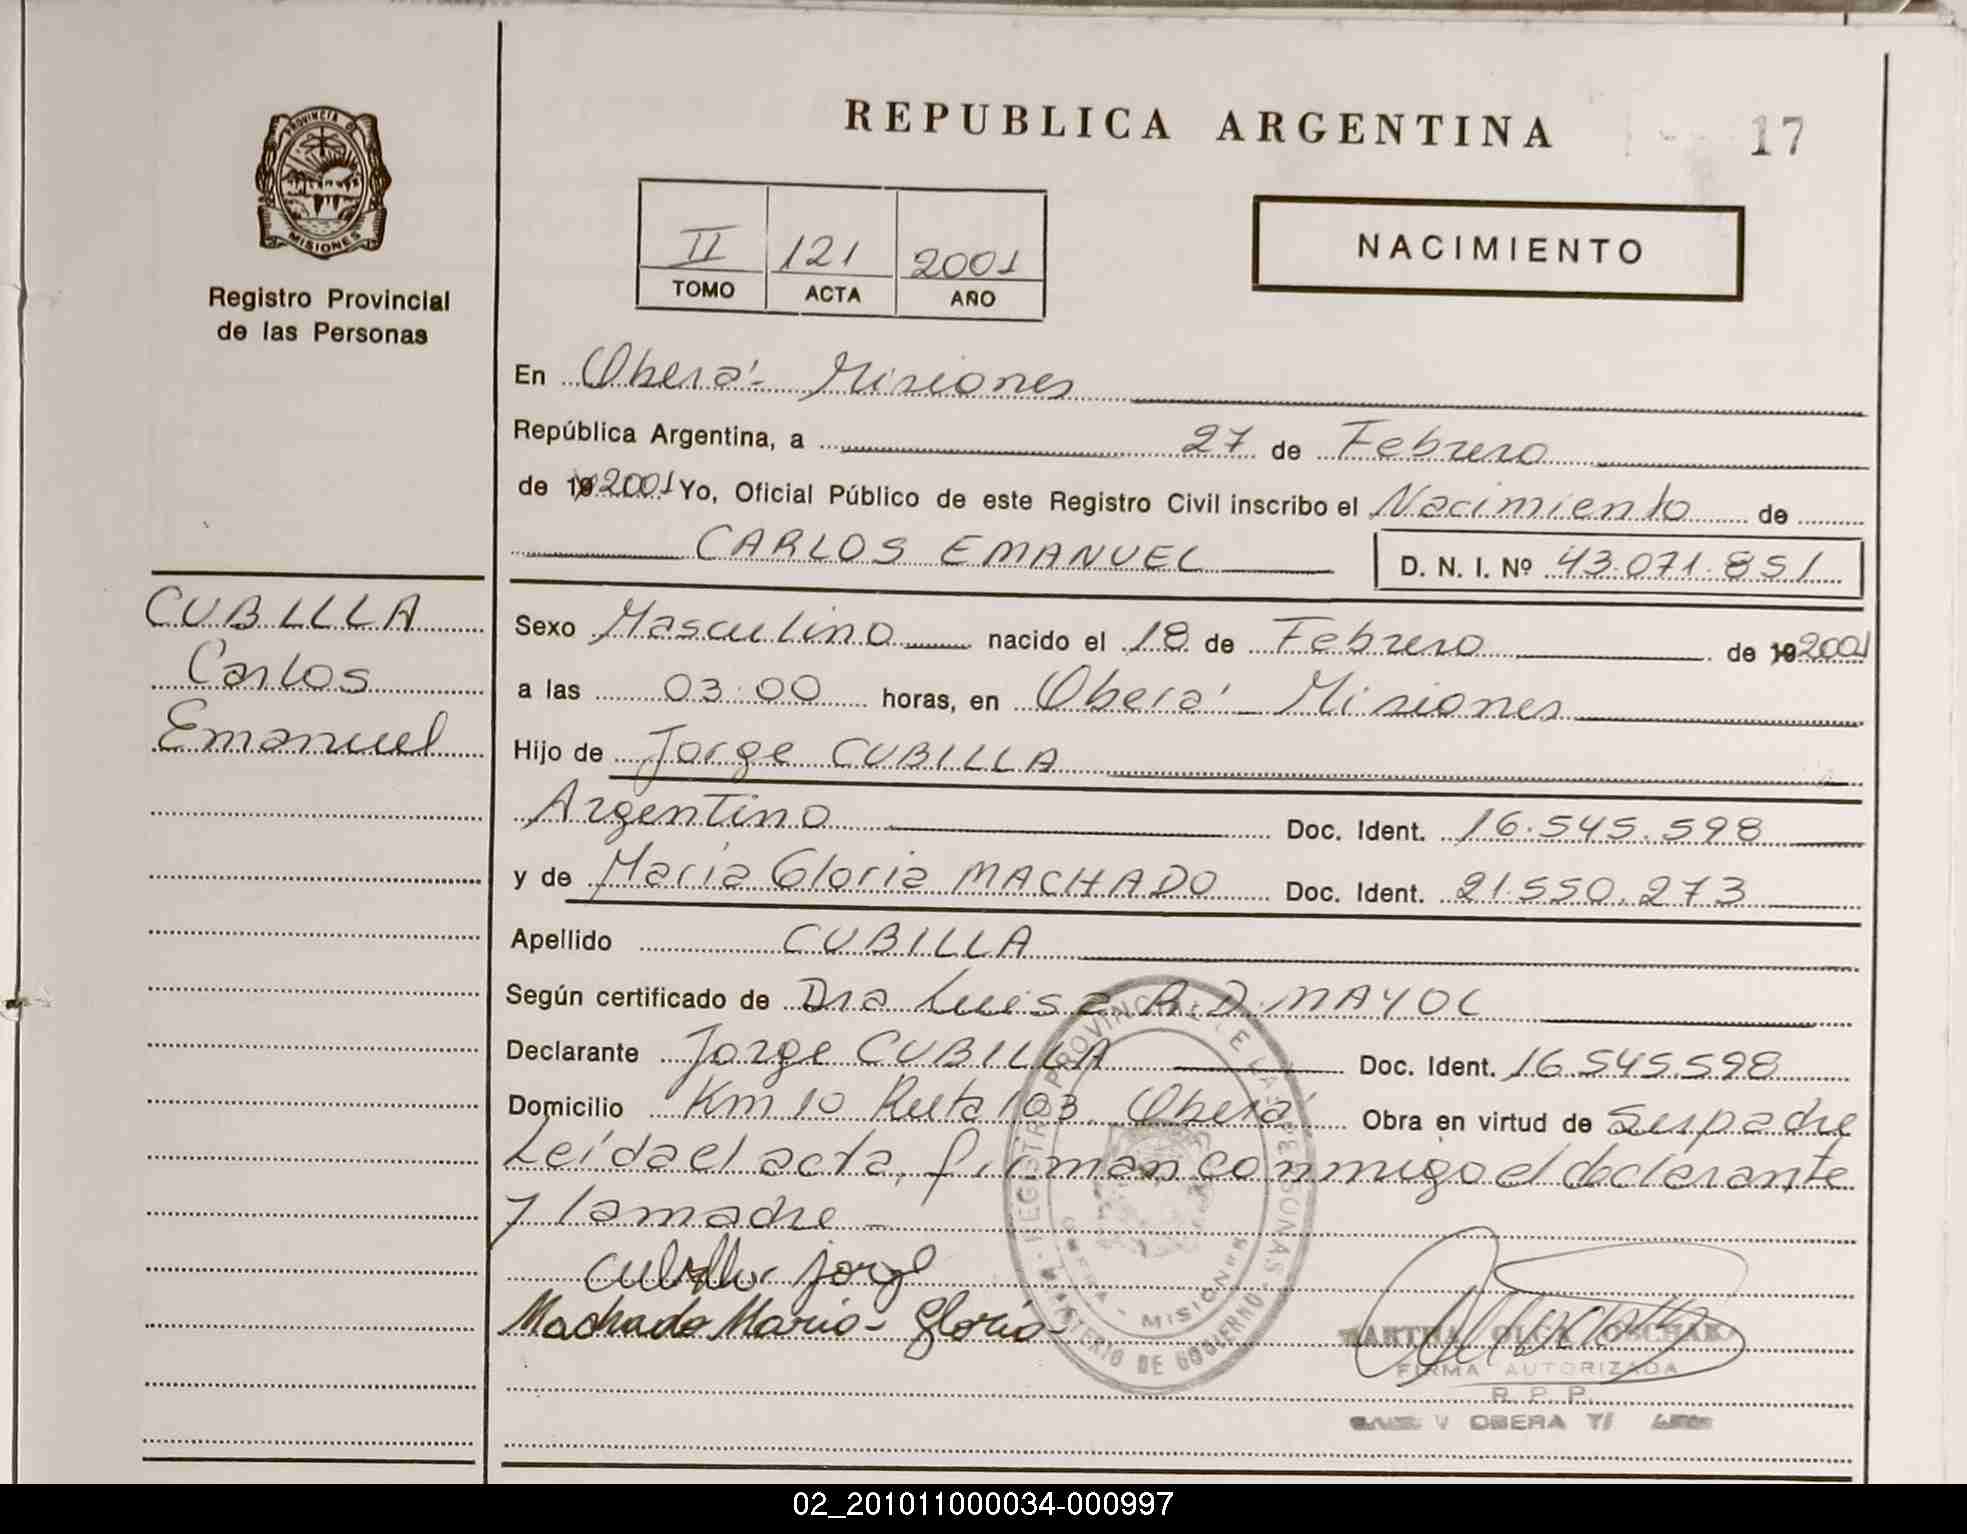 REPUBLICA ARGENTINA
17
PROVINCIA DE
MISIONES
Registro Provincial
de las Personas
II 121 2001
TOMO ACTA AÑO
NACIMIENTO
En Oberá - Misiones
República Argentina, a 27 de Febrero
de 19 2001 Yo, Oficial Público de este Registro Civil inscribo el Nacimiento de
CARLOS EMANUEL D. N. I. Nº 43.071.851
CUBILLA
Carlos
Emanuel
Sexo Masculino nacido el 18 de Febrero de 19 2001
a las 03:00 horas, en Oberá - Misiones
Hijo de Jorge CUBILLA
Argentino Doc. Ident. 16.545.598
y de María Gloria MACHADO Doc. Ident. 21.550.273
Apellido CUBILLA
Según certificado de Dra Luisa R.D. MAYOL
Declarante Jorge CUBILLA Doc. Ident. 16.545.598
Domicilio Km 10 Ruta 103. Oberá Obra en virtud de Ser padre
Leída el acta, firman conmigo el declarante
y la madre -
Cubilla Jorge
Machado Maria Gloria
REGISTRO PROVINCIAL DE LAS PERSONAS
MINISTERIO DE GOBIERNO
OBERA - MISIONES
MARTHA OLGA
FIRMA AUTORIZADA
R. P. P.
OBERA
02_201011000034-000997